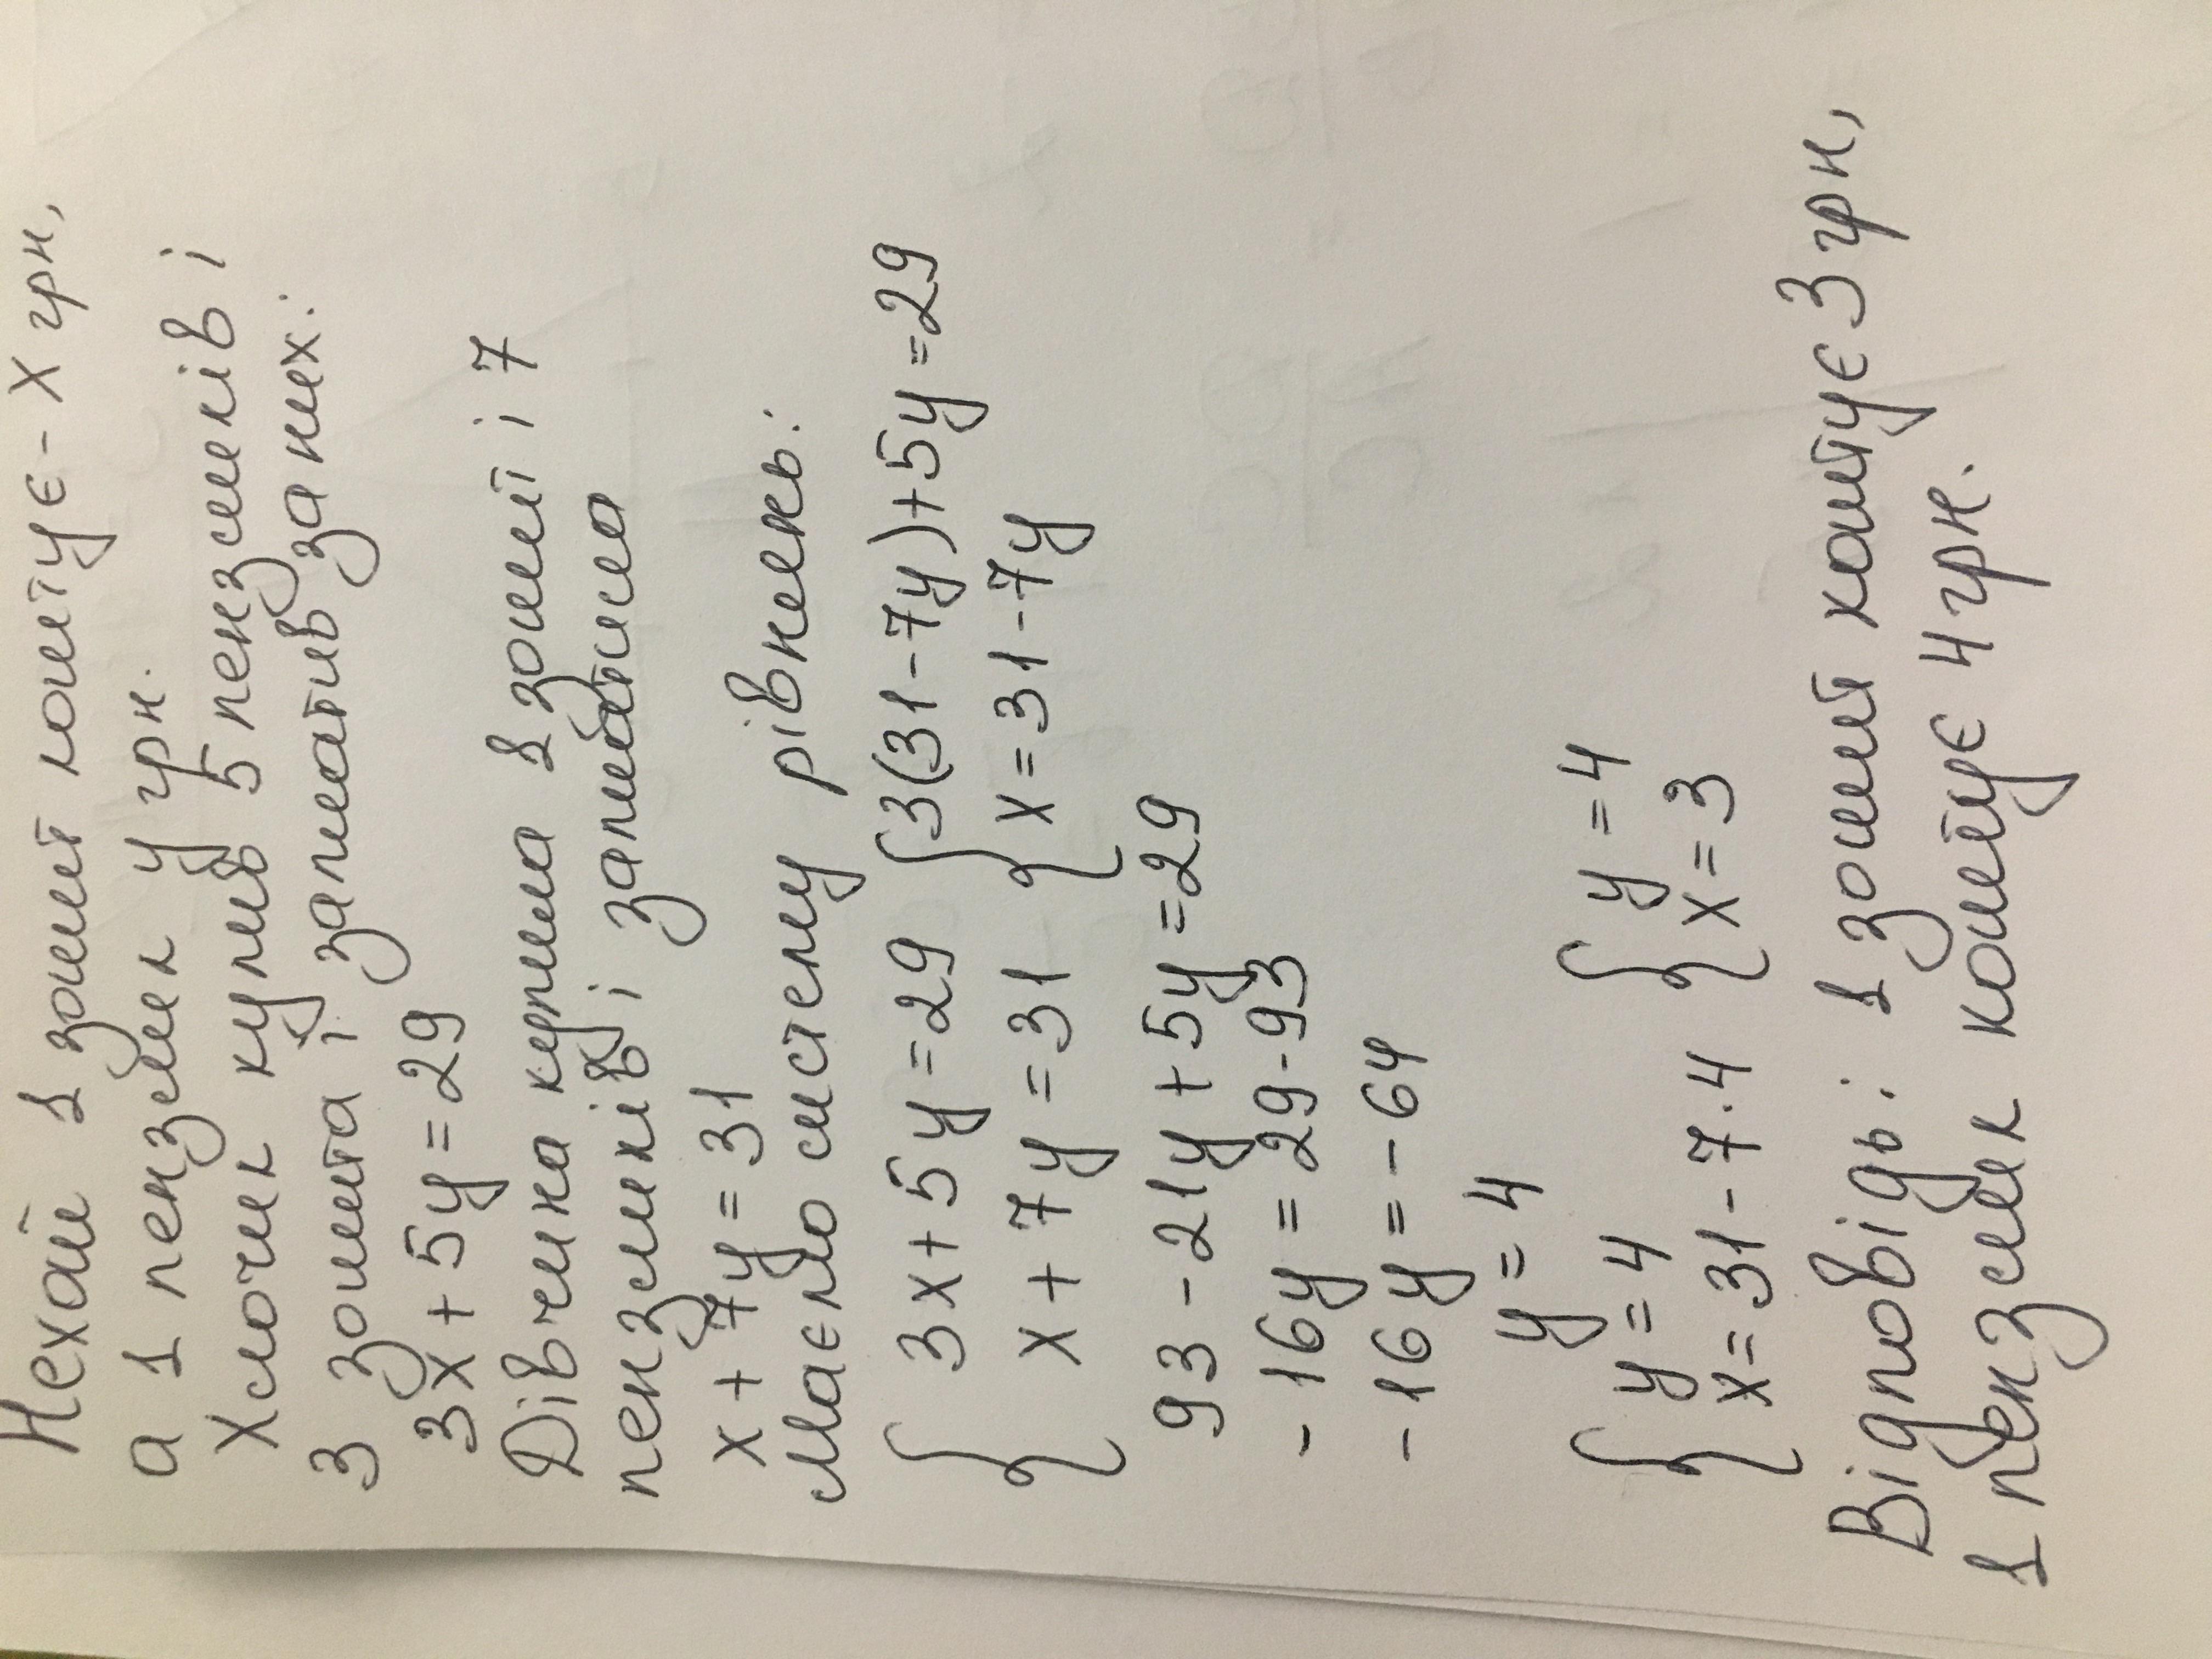 Нехай 1 зошит коштує - x грн,
а 1 пензлик y грн.
Хлочик купив 5 пензликів і
3 зошита і заплатив за них:
3x + 5y = 29
Дівчинка купила 1 зошит і 7
пензликів, і заплатила
x + 7y = 31
Маємо систему рівнень:
{ 3x + 5y = 29 { 3(31 - 7y) + 5y = 29
x + 7y = 31 x = 31 - 7y
93 - 21y + 5y = 29
- 16y = 29 - 93
- 16y = - 64
y = 4
{ y = 4 { y = 4
x = 31 - 7 · 4 x = 3
Відповідь: 1 зошит коштує 3 грн,
1 пензлик коштує 4 грн.